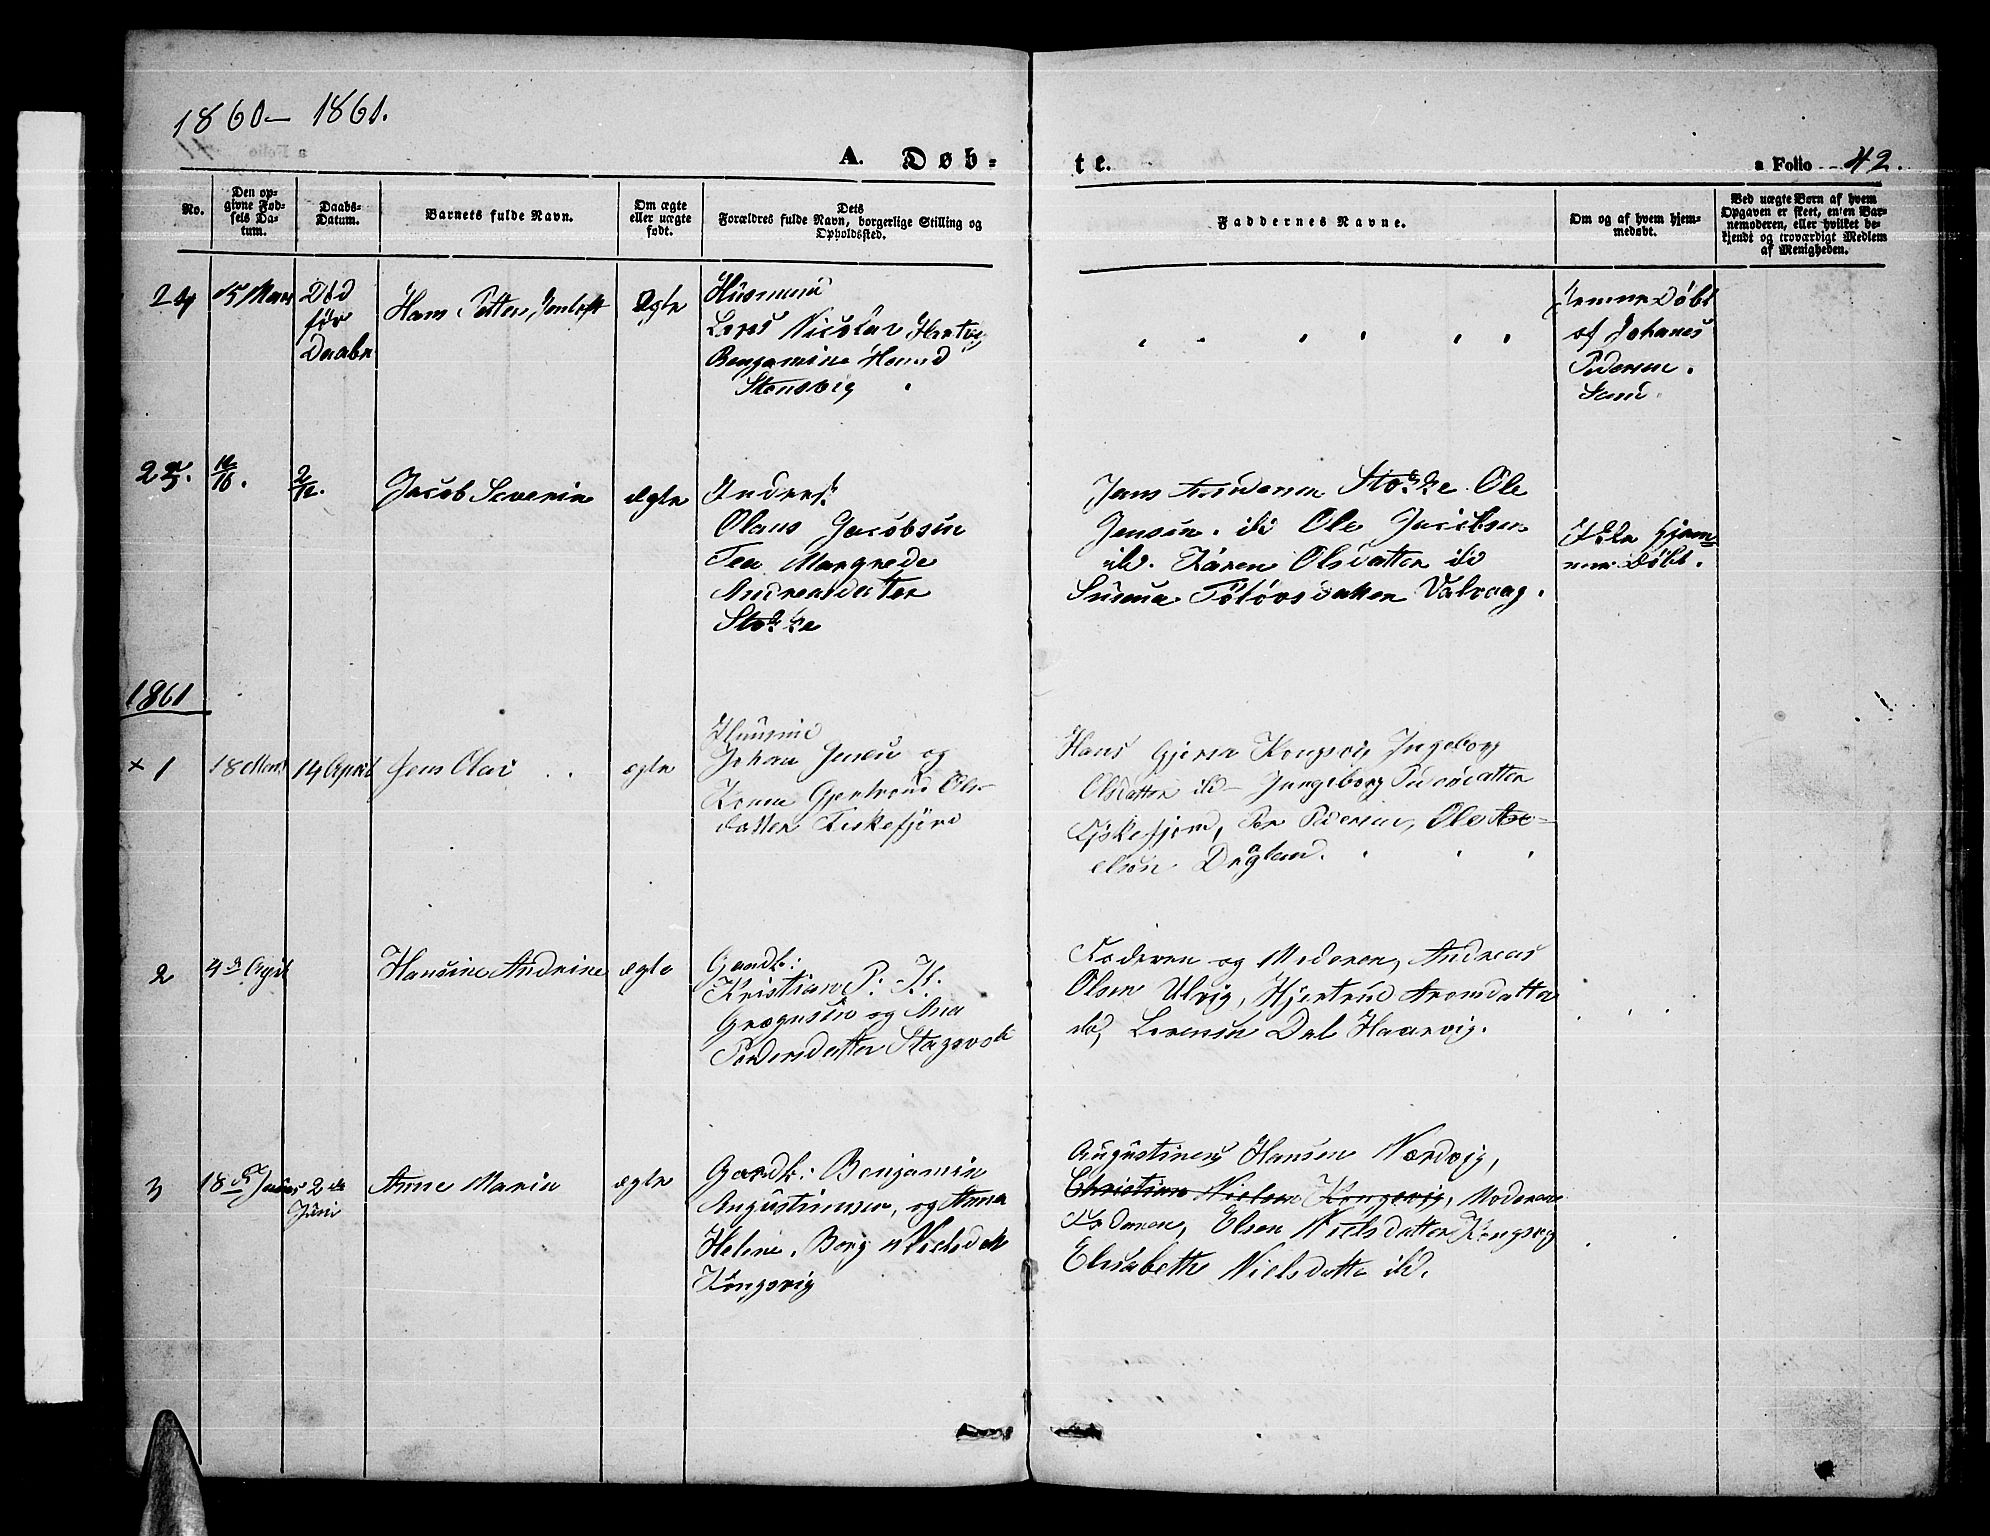 1860 – 1861.
A. Døb-
te.
a Folio 42.
No.
Den op-
givne Fød-
sels Da-
tum.
Daabs-
Datum.
Barnets fulde Navn.
Om ægte
eller uægte
født.
Dets
Forældres fulde Navn, borgerlige Stilling og
Opholdssted.
Faddernes Navne.
Om og af hvem hjem-
medøbt.
Ved uægte Børn af hvem
Opgaven er skeet, enten Bar-
nemoderen, eller hvilket be-
kjendt og troværdigt Medlem
af Menigheden.
24
15 Mars
Død
før
Daaben
Hans Petter
Ægte
Huusmand
Nicolai
Benjamine
Stensvig
Døbt
af Johanes
Pedersen.
Sand.
25.
2/12.
Jacob Severin
ægte
Inderst
Olaus Jacobsen
Tea Margrede
Andreasdatter
Stokke
Jens Andersen Stokke Ole
Jensen. ibd Ole Jacobsen
ibd. Karen Olsdatter ibd
Valvaag.
Ikke hjem-
me Døbt.
1861
× 1
18 Mars
14 April
Jens Olai
ægte
Huusmd
Johan Jensen og
Gjertrud Ols-
datter Fiskefjord
Hans Kongsvig Ingeborg
Olsdatter ibd – Ingeborg Pedersdatter
Fiskefjord, Per Pedersen, Ole Ax-
elsen
2
4 April
Hansine Andrine
ægte
Gaardb:
Kristian P. H.
og Ana
Pedersdatter
Faderen og Moderen, Andreas
Olsen Ulvig, Hjertrud Aronsdatter
ibd, Lorensen Dal Haarvig.
3
18
2 de
Juni
Anne Maria
ægte
Gaardb: Benjamin
Augustinusen, og Anna
Helene Berg Nielsdatt
Kongsvig
Augustinus Hansen Nordvig,
Christian Nielsen Kongsvig, Moderen
Faderen, Elsen Nielsdatter Kongsvig
Elisabeth Nielsdatter ibd.